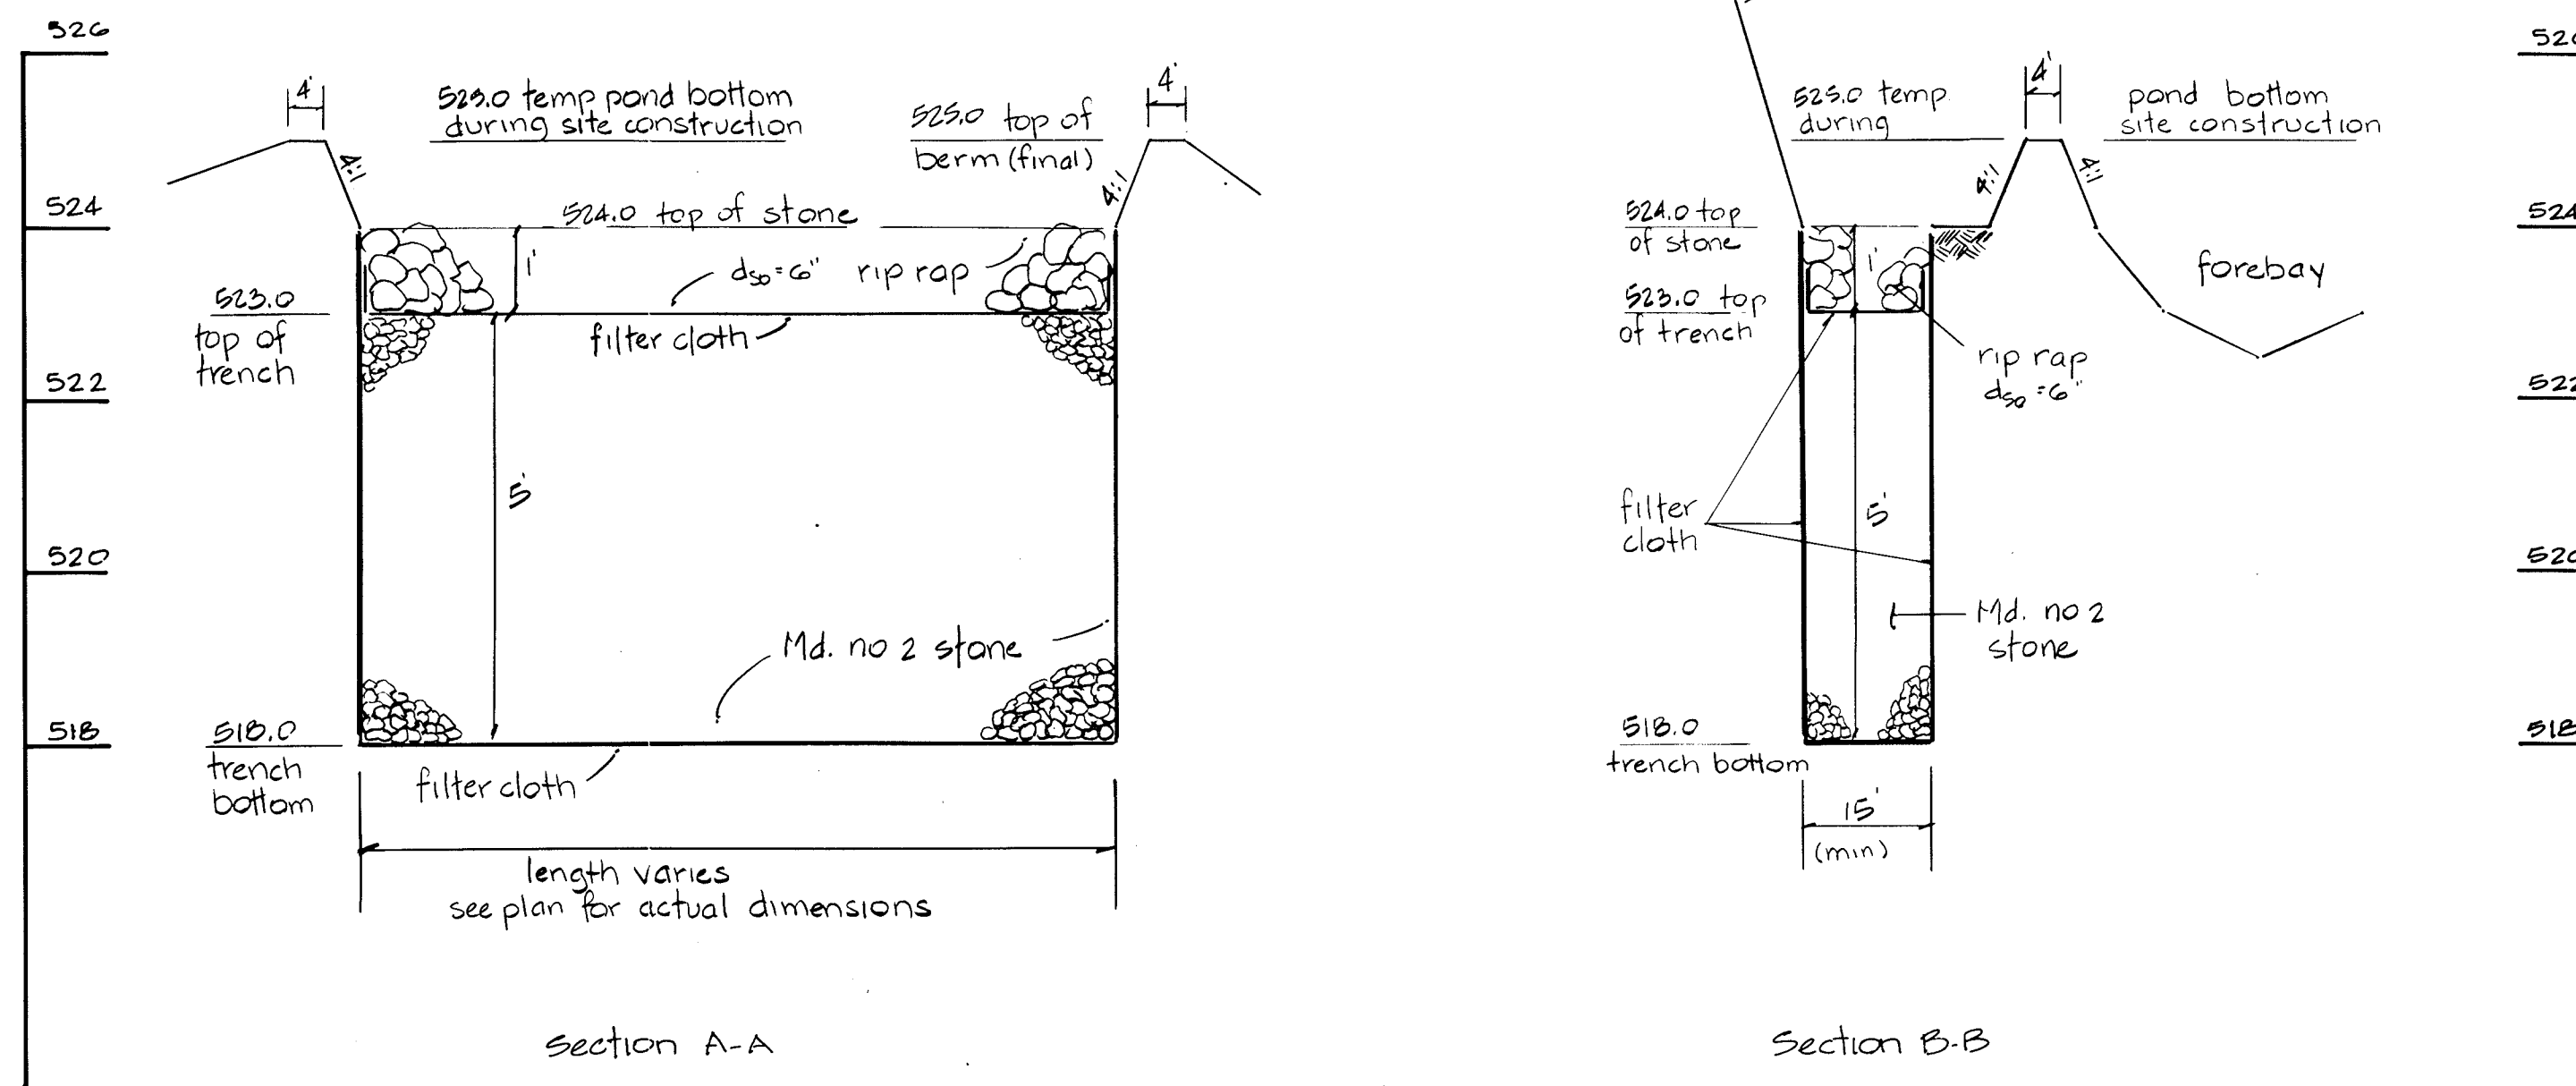 526
524
522
520
518
4'
525.0 temp pond bottom
during site construction
525.0 top of
berm (final)
4'
4:1
4:1
524.0 top of stone
1'
d50 = 6" rip rap
523.0
top of
trench
filter cloth
5'
Md. no 2 stone
518.0
trench
bottom
filter cloth
length varies
see plan for actual dimensions
Section A-A
525.0 temp
during
4'
pond bottom
site construction
4:1
4:1
524.0 top
of stone
1'
523.0 top
of trench
forebay
rip rap
d50 = 6"
filter
cloth
5'
Md. no 2
stone
518.0
trench bottom
15'
(min)
Section B-B
52
524
522
520
518